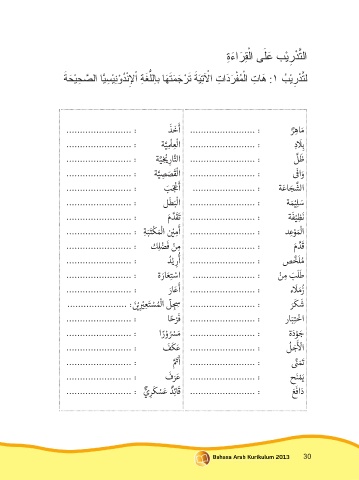 التَّدْرِيْب عَلَى الْقِرَاءَةِ
التَّدْرِيْبُ ١ : هَاتِ الْمُفْرَدَاتِ الْآتِيَةَ تَرْجَمَتَهَا بِاللُّغَةِ الْإِنْدُوْنِيْسِيَّا الصَّحِيْحَةَ
مَاهِرٌ : ........................ أَخَذَ : ........................
بِلَادِ : ........................ الْعِلْمِيَّة : ........................
ظَلَّ : ........................ التَّارِيْخِيَّة : ........................
: ........................ الْقَصَصِيَّة : ........................
الشَّجَاعَة : ........................ أَعْجَبَ : ........................
سَلِيْمَة : ........................ الْبَطَل : ........................
نَظِيْفَة : ........................ تَقَدَّمَ : ........................
الْمَوْعِد : ........................ أَمِيْنُ الْمَكْتَبَةِ : ........................
قَدَّمَ : ........................ مِنْ فَضْلِكَ : ........................
مُلَخَّص : ........................ أُرِيْدُ : ........................
طَلَبَ مِنْ : ........................ اسْتِعَارَة : ........................
زُمَلَاء : ........................ أَعَارَ : ........................
شَكَرَ : ........................ سِجِلّ الْمُسْتَعِيْرِيْنَ : ......................
اخْتِبَار : ........................ فَرَحًا : ........................
جَوْدَة : ........................ مَسْرُوْرًا : ........................
الْأَجَلُ : ........................ عَكَفَ : ........................
تَمَنَّى : ........................ أَتَمَّ : ........................
يَمْنَحُ : ........................ عَرَفَ : ........................
دَافَعَ : ........................ قَائِدٌ عَسْكَرِيٌّ : ........................
Bahasa Arab Kurikulum 2013 30